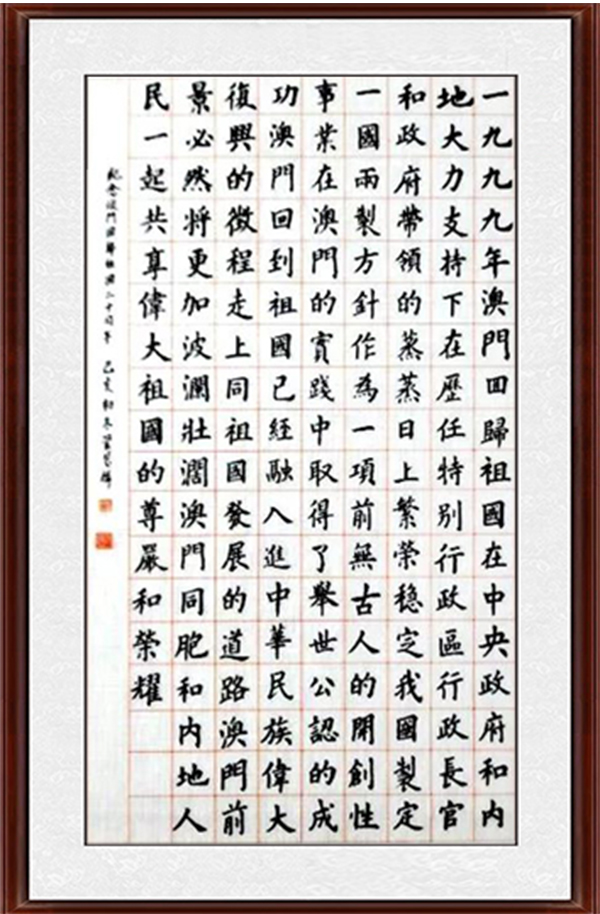 一九九九年澳門回歸祖國在中央政府和內
地大力支持下在歷任特別行政區行政長官
和政府帶領的蒸蒸日上繁榮穩定我國製定
一國兩製方針作為一項前無古人的開創性
事業在澳門的實踐中取得了舉世公認的成
功澳門回到祖國已經融入進中華民族偉大
復興的徵程走上同祖國發展的道路澳門前
景必然將更加波瀾壯濶澳門同胞和內地人
民一起共享偉大祖國的尊嚴和榮耀
紀念澳門回歸祖國二十周年 己亥初冬